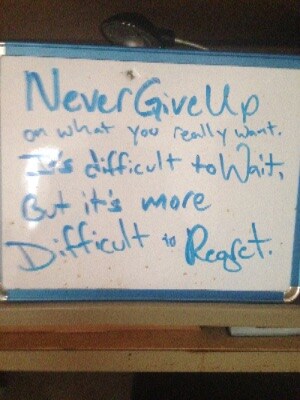 Never Give Up
on what you really want.
It's difficult to Wait,
But it's more
Difficult to Regret.